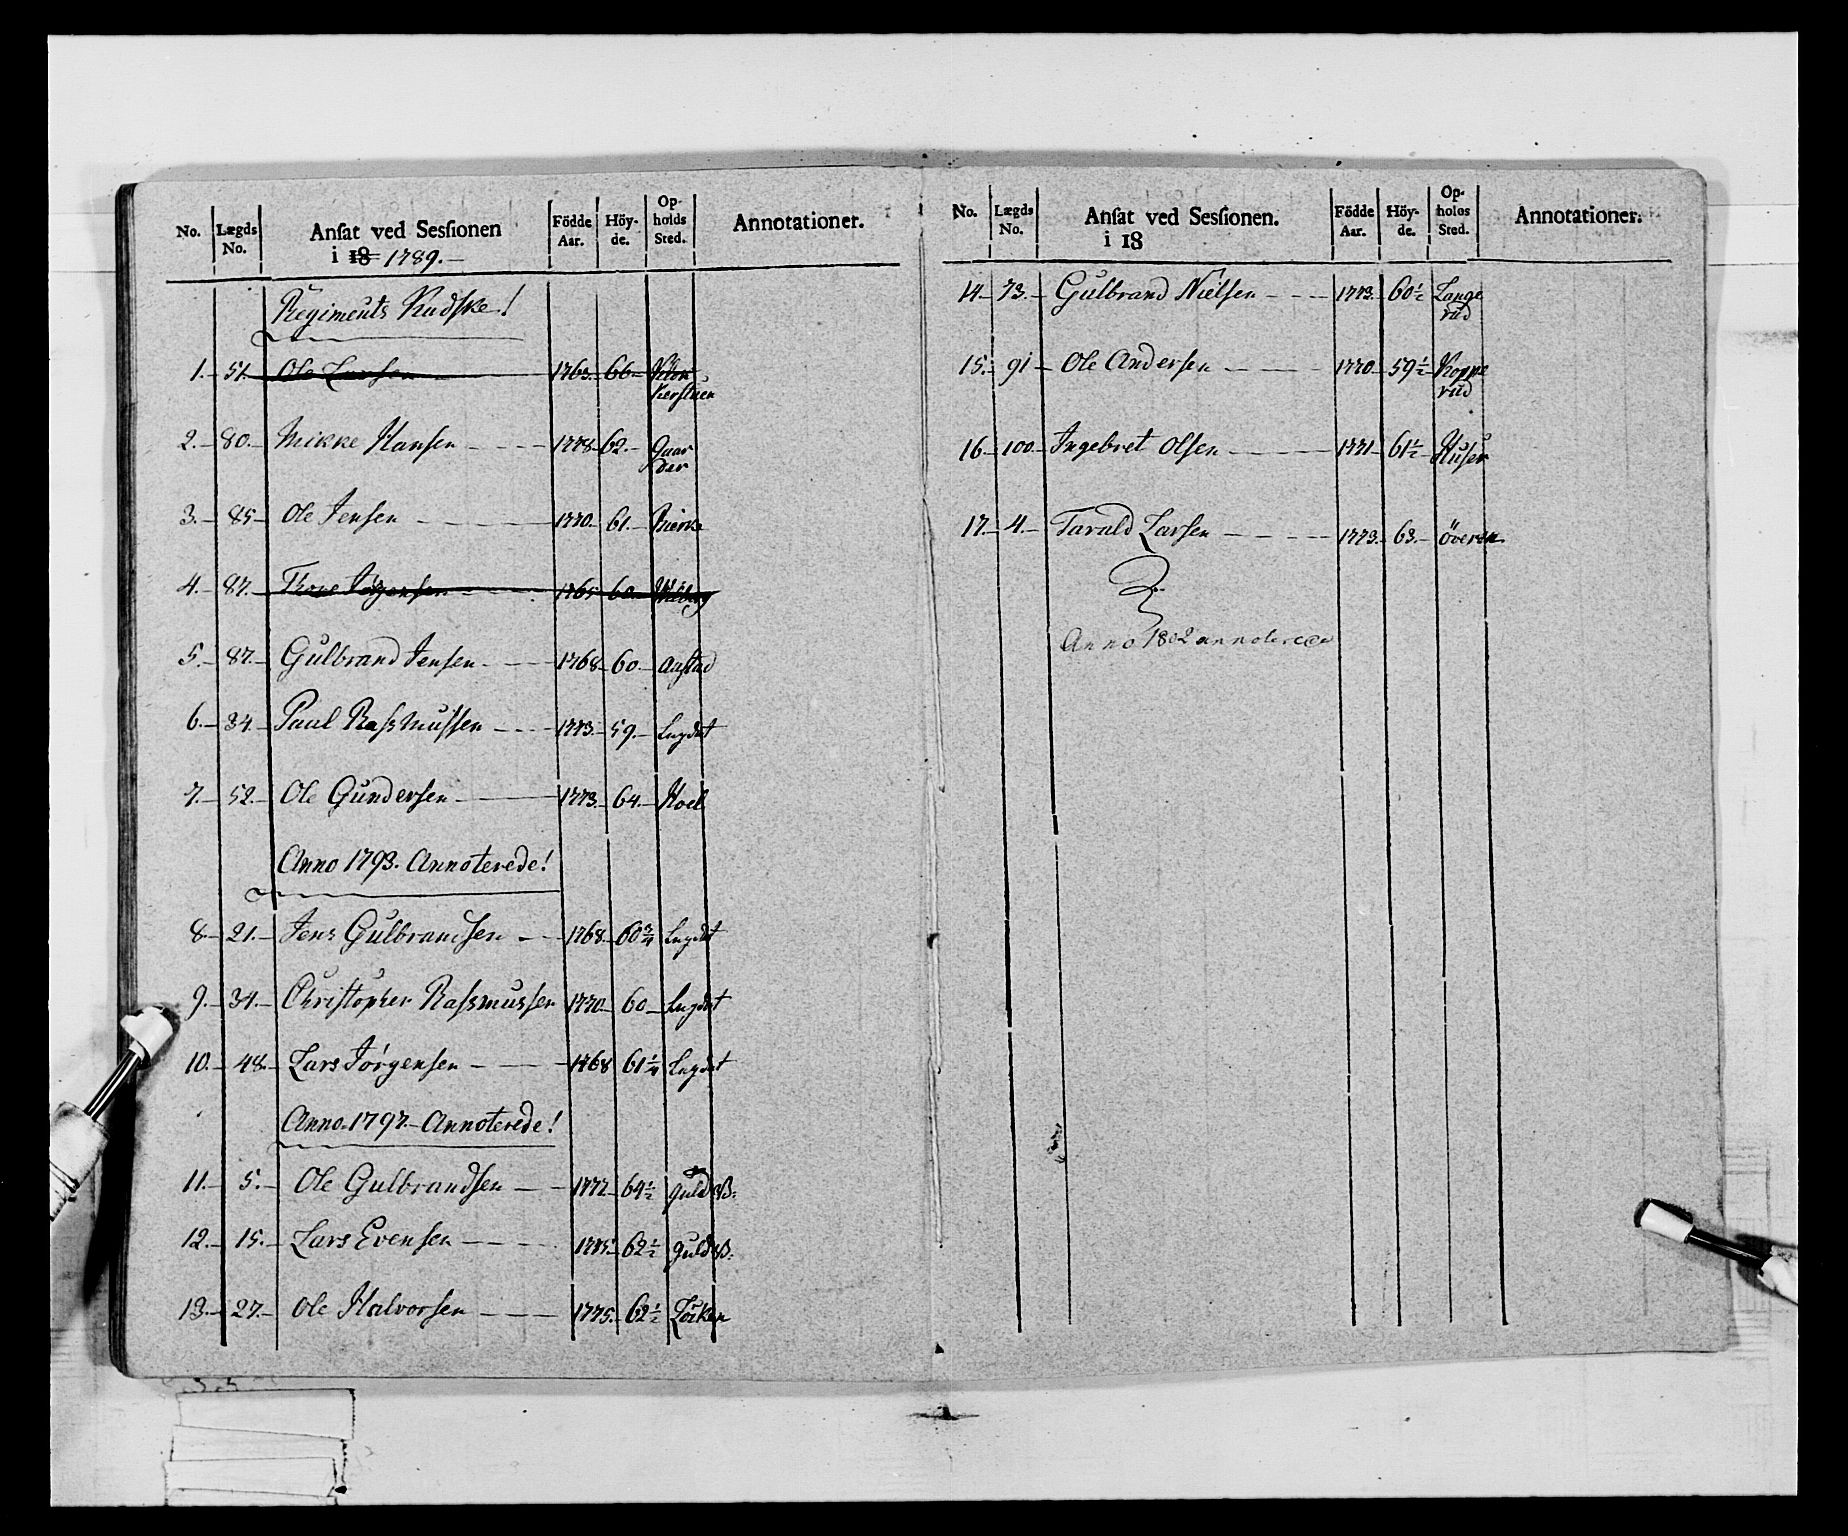 No. Lægds No. Ansat ved Sessionen i 18 1789.— Födde Aar. Höy-de. Op-holds Sted. Annotationer.
Regiments Kudske!
1.– 51. Ole Larsen 1763.– 66–
2.– 80.– Mikke Hansen – – – 1778– 62.– Gaar der
3.– 85– Ole Jensen – – – 1770.– 61.– Bierke
4.– 87.– Thore Jörgensen – – 1765 60.–
5.– 87.– Gulbrand Jensen – – – 1768– 60.– Aastad
6.– 34.– Paul Rassmussen – – – 1773.– 59.– Lægdet
7.– 52.– Ole Gundersen – – 1773.– 64.– Hoel
Anno 1793. Annoterede!
8.– 21.– Jens Gulbrandsen – – 1768.– 60¾ Lægdet
9.– 34.– Christopher Rassmussen 1770.– 60.– Lægdet
10.– 48.– Lars Jörgensen – – – 1768 61¼ Lægdet
Anno 1797.– Annoterede!
11.– 5.– Ole Gulbrandsen – – 1772– 64½ Guld B:
12.– 15.– Lars Evensen – – – 1775 62½ Guld B:
13.– 27.– Ole Halvorsen – – – 1775. 62½ Löken
No. Lægds No. Ansat ved Sessionen. i 18 Födde Aar. Höy-de. Op-holds Sted. Annotationer.
14– 73.– Gulbrand Nielsen – – – 1773. 60½ Lange rud
15.– 91– Ole Andersen – – – 1770– 59½ Koppe rud
16.– 100.– Ingebret Olsen – – – 1771– 61½ Huser
17.– 4.– Tarald Larsen – – – – 1773.– 63.– Överen
Anno 1802 annoterede